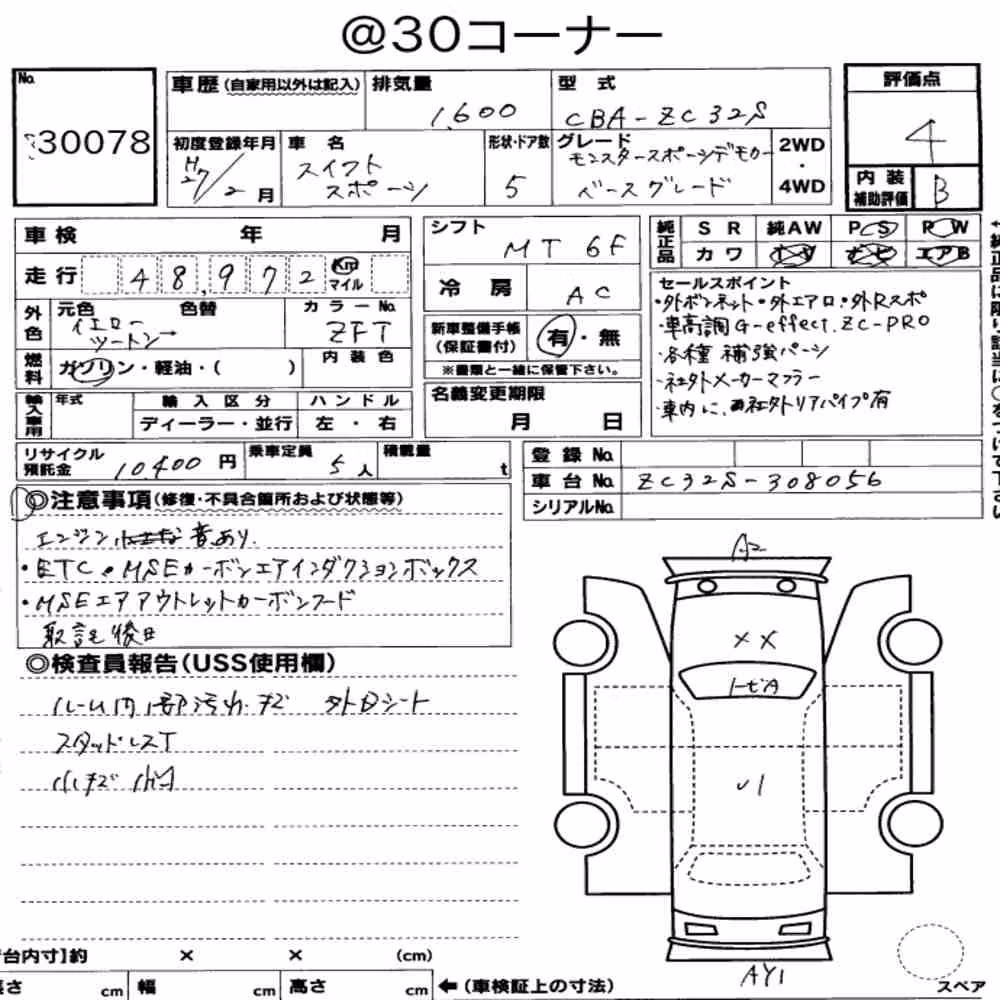 @30コーナー
No. 30078
車歴 (自家用以外は記入)
排気量 1,600
型式 CBA-ZC32S
評価点 4
内装補助評価 B
初度登録年月 H27/2月
車名 スイフト スポーツ
形状・ドア数 5
グレード モンスタースポーツデモカー
ベースグレード
2WD・4WD
車検 年 月
走行 48,972 Km マイル
シフト MT 6F
冷房 AC
純正品 SR 純AW PS PW
カワ TV ナビ エアB
外色 元色 イエローツートン→ 色替
カラーNo. ZFT
燃料 ガソリン・軽油・( )
内装色
新車整備手帳(保証書付) 有・無
※書類と一緒に保管下さい。
セールスポイント
・外ボンネット・外エアロ・外Rスポ
・車高調G-effect.ZC-PRO
・各種 補強パーツ
・社外メーカーマフラー
・車内に、社外リアパイプ有
輸入車用 年式 輸入区分 ディーラー・並行 ハンドル 左・右
名義変更期限 月 日
リサイクル預託金 10,400円
乗車定員 5人
積載量 t
登録No.
車台No. ZC32S-308056
シリアルNo.
◎注意事項(修復・不具合箇所および状態等)
エンジン 音あり.
・ETC・MSEカーボンエアインダクションボックス
・MSEエアアウトレットカーボンフード
取説後日
◎検査員報告(USS使用欄)
ルーム内一部汚れ・キズ 外Dシート
スタッドレスT
小キズ 小凹
A2
XX
トビA
AY1
台内寸]約 × × (cm)
長さ cm 幅 cm 高さ cm
←(車検証上の寸法)
スペア